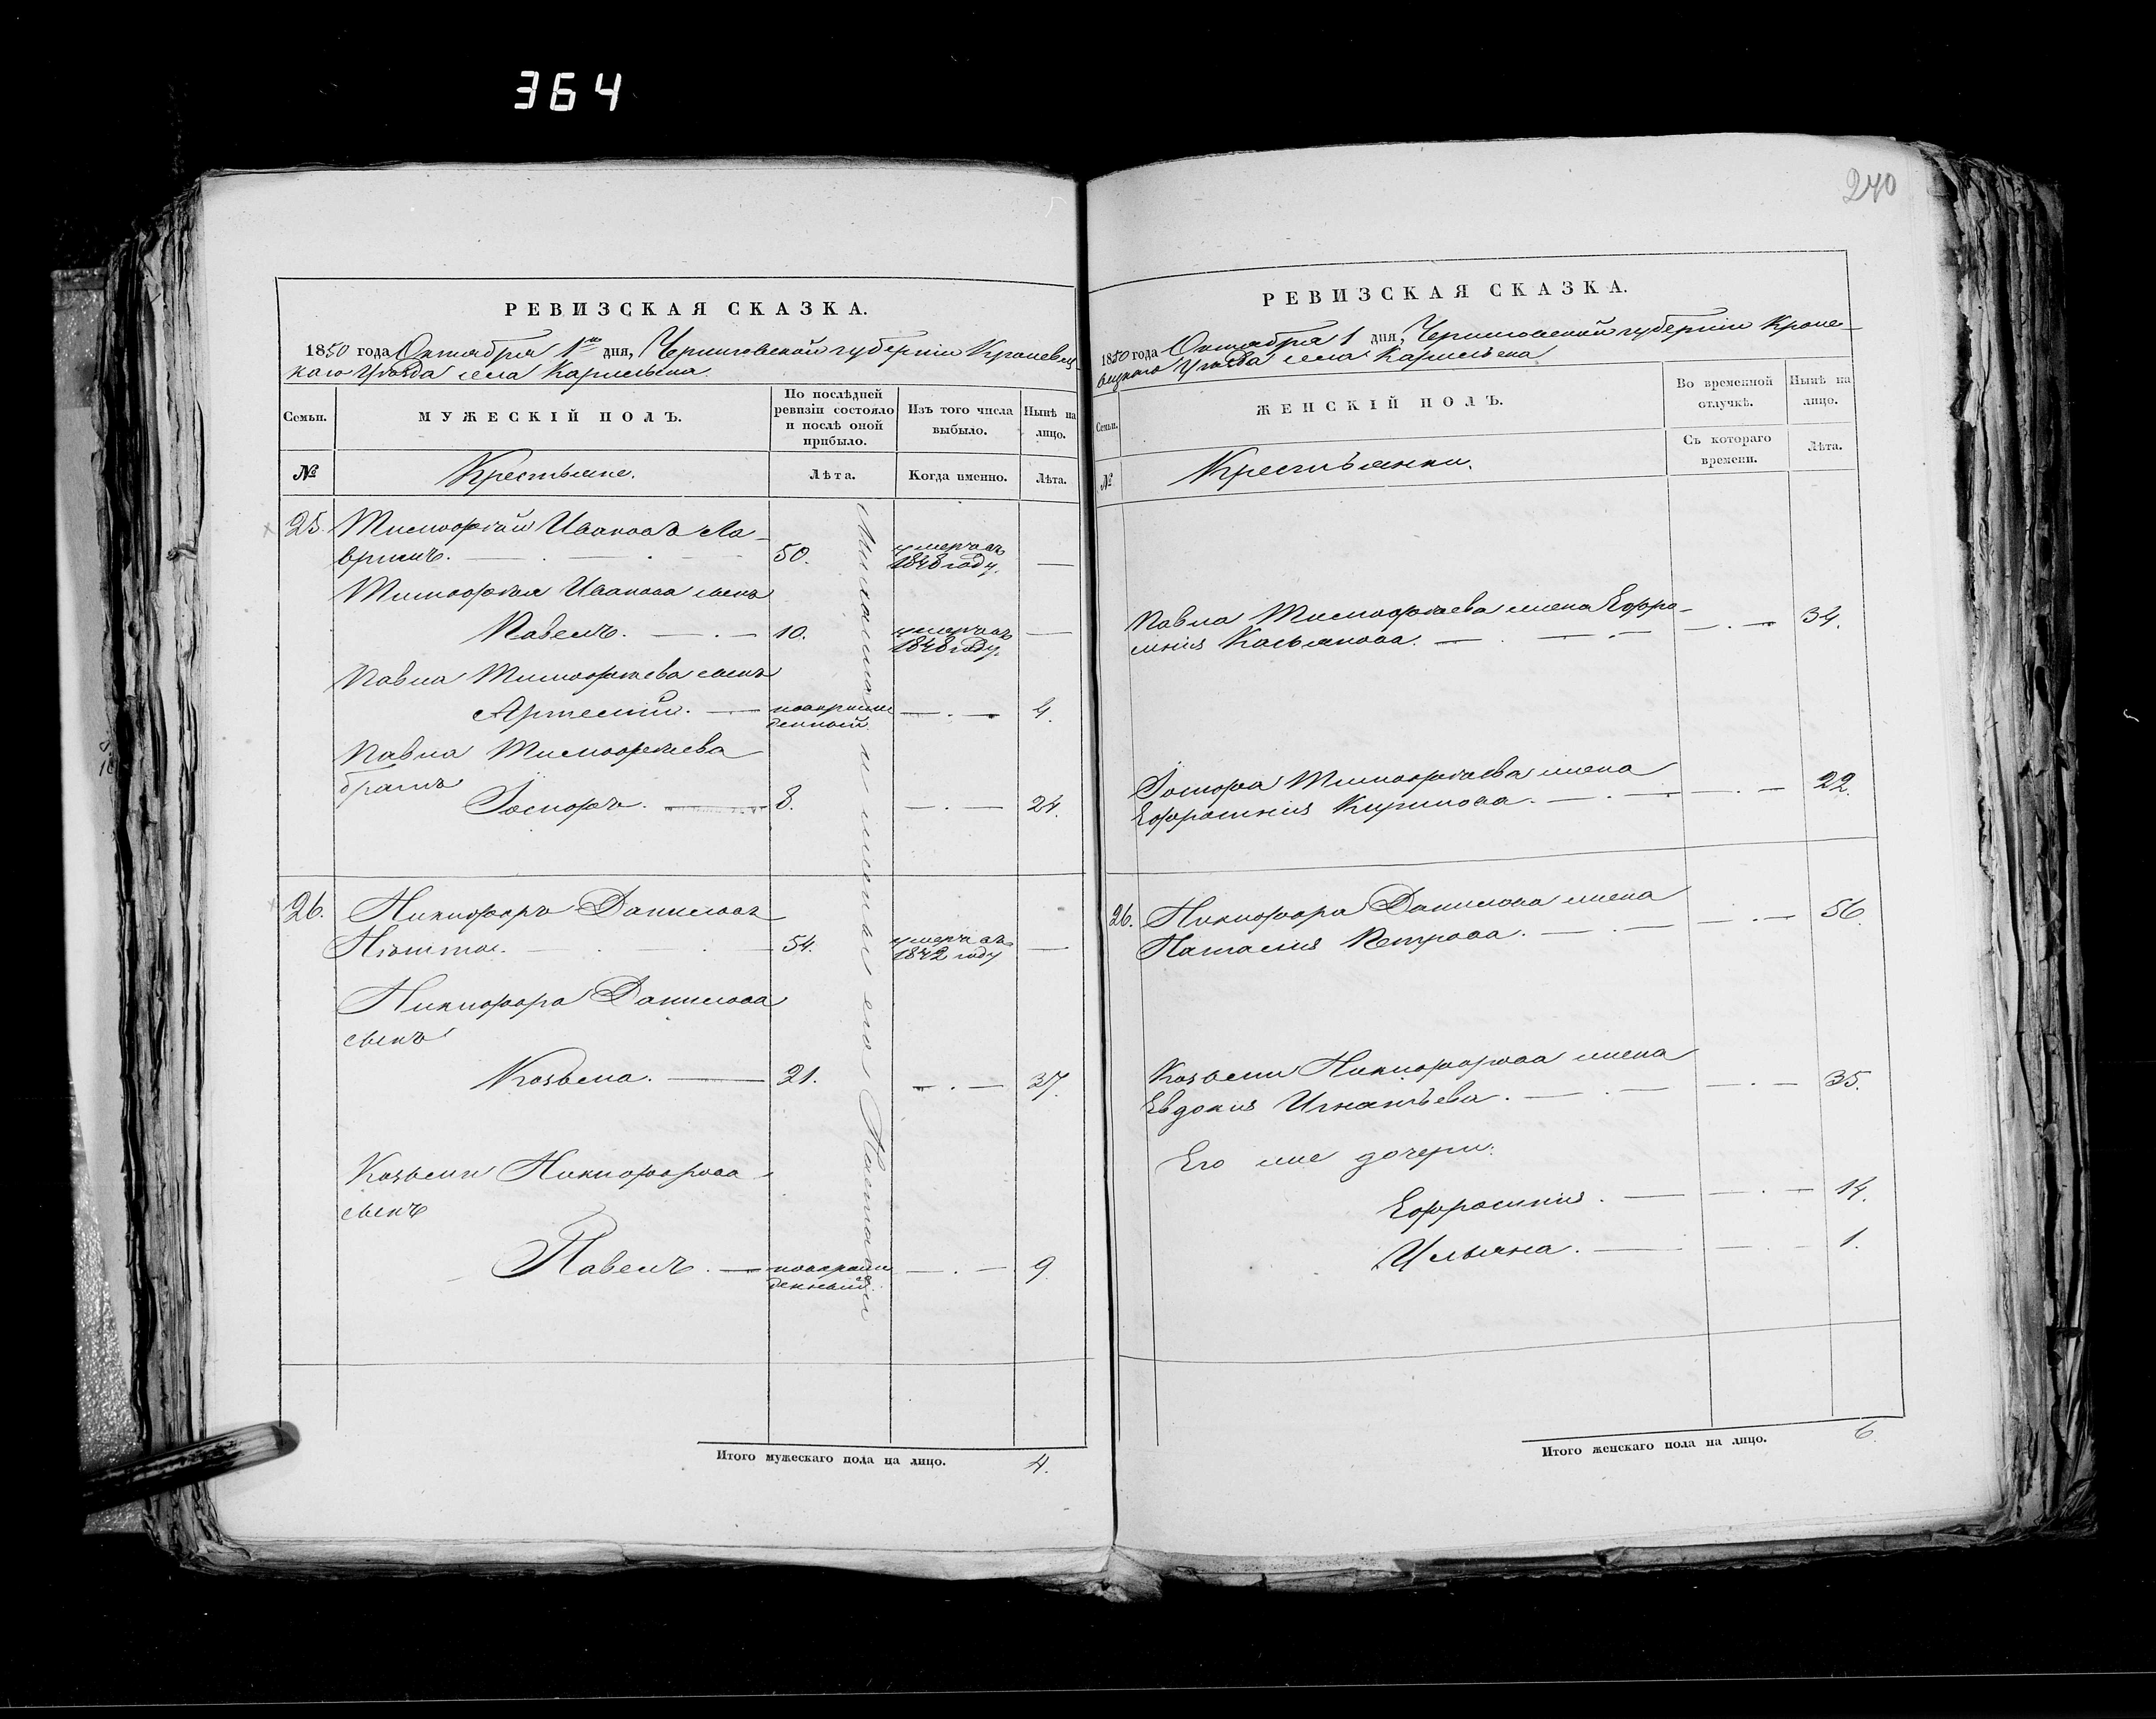 364
240
РЕВИЗСКАЯ СКАЗКА.
1850 года Октября 1го дня, Черниговской губерніи Кролевец-
каго Уѣзда села Карыльска
Семьи.
МУЖЕСКІЙ ПОЛЪ.
По послѣдней
ревизіи состояло
и послѣ оной
прибыло.
Изъ того числа
выбыло.
Нынѣ на
лицо.
№
Крестьяне.
Лѣта.
Когда именно.
Лѣта.
25. Тимофѣй Ивановъ Ла-
50. умеръ въ
1848 году.
Тимофѣя Иванова сынъ
Павелъ. 10. умеръ въ
1848 году.
Павла Тимофѣева сынъ
Артемій. новорож
денный 4.
Павла Тимофѣева
братъ
Іосифъ. 8. 24.
26. Никифоръ Даниловъ
54. умеръ въ
1842 году
Никифора Данилова
сынъ
Козьма. 21. 37.
Козьмы Никифорова
сынъ
Павелъ. новорож
денный. 9.
Итого мужескаго пола на лицо. 4.
РЕВИЗСКАЯ СКАЗКА.
1850 года Октября 1 дня, Черниговской губерніи Кроле-
вецкаго Уѣзда села Карыльска
Семьи.
ЖЕНСКІЙ ПОЛЪ.
Во временной
отлучкѣ.
Нынѣ на
лицо.
№
Крестьянки.
Съ котораго
времени.
Лѣта.
Павла Тимофѣева жена Ефро-
синія Касьянова. 34.
Іосифа Тимофѣева жена
Ефросинія Кирилова. 22.
26. Никифора Данилова жена
Наталия Петрова. 56.
Козьмы Никифорова жена
Евдокия Игнатьева. 35.
Его же дочери:
Ефросинія. 14.
Ульяна. 1.
Итого женскаго пола на лицо. 6.